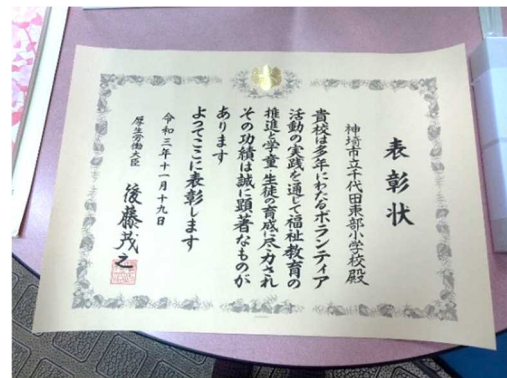 表彰状
神埼市立千代田東部小学校殿
貴校は多年にわたるボランティア
活動の実践を通じて福祉教育の
推進と学童・生徒の育成に尽力され
その功績は誠に顕著なものが
あります
よってここに表彰します
令和三年十一月十九日
厚生労働大臣 後藤茂之